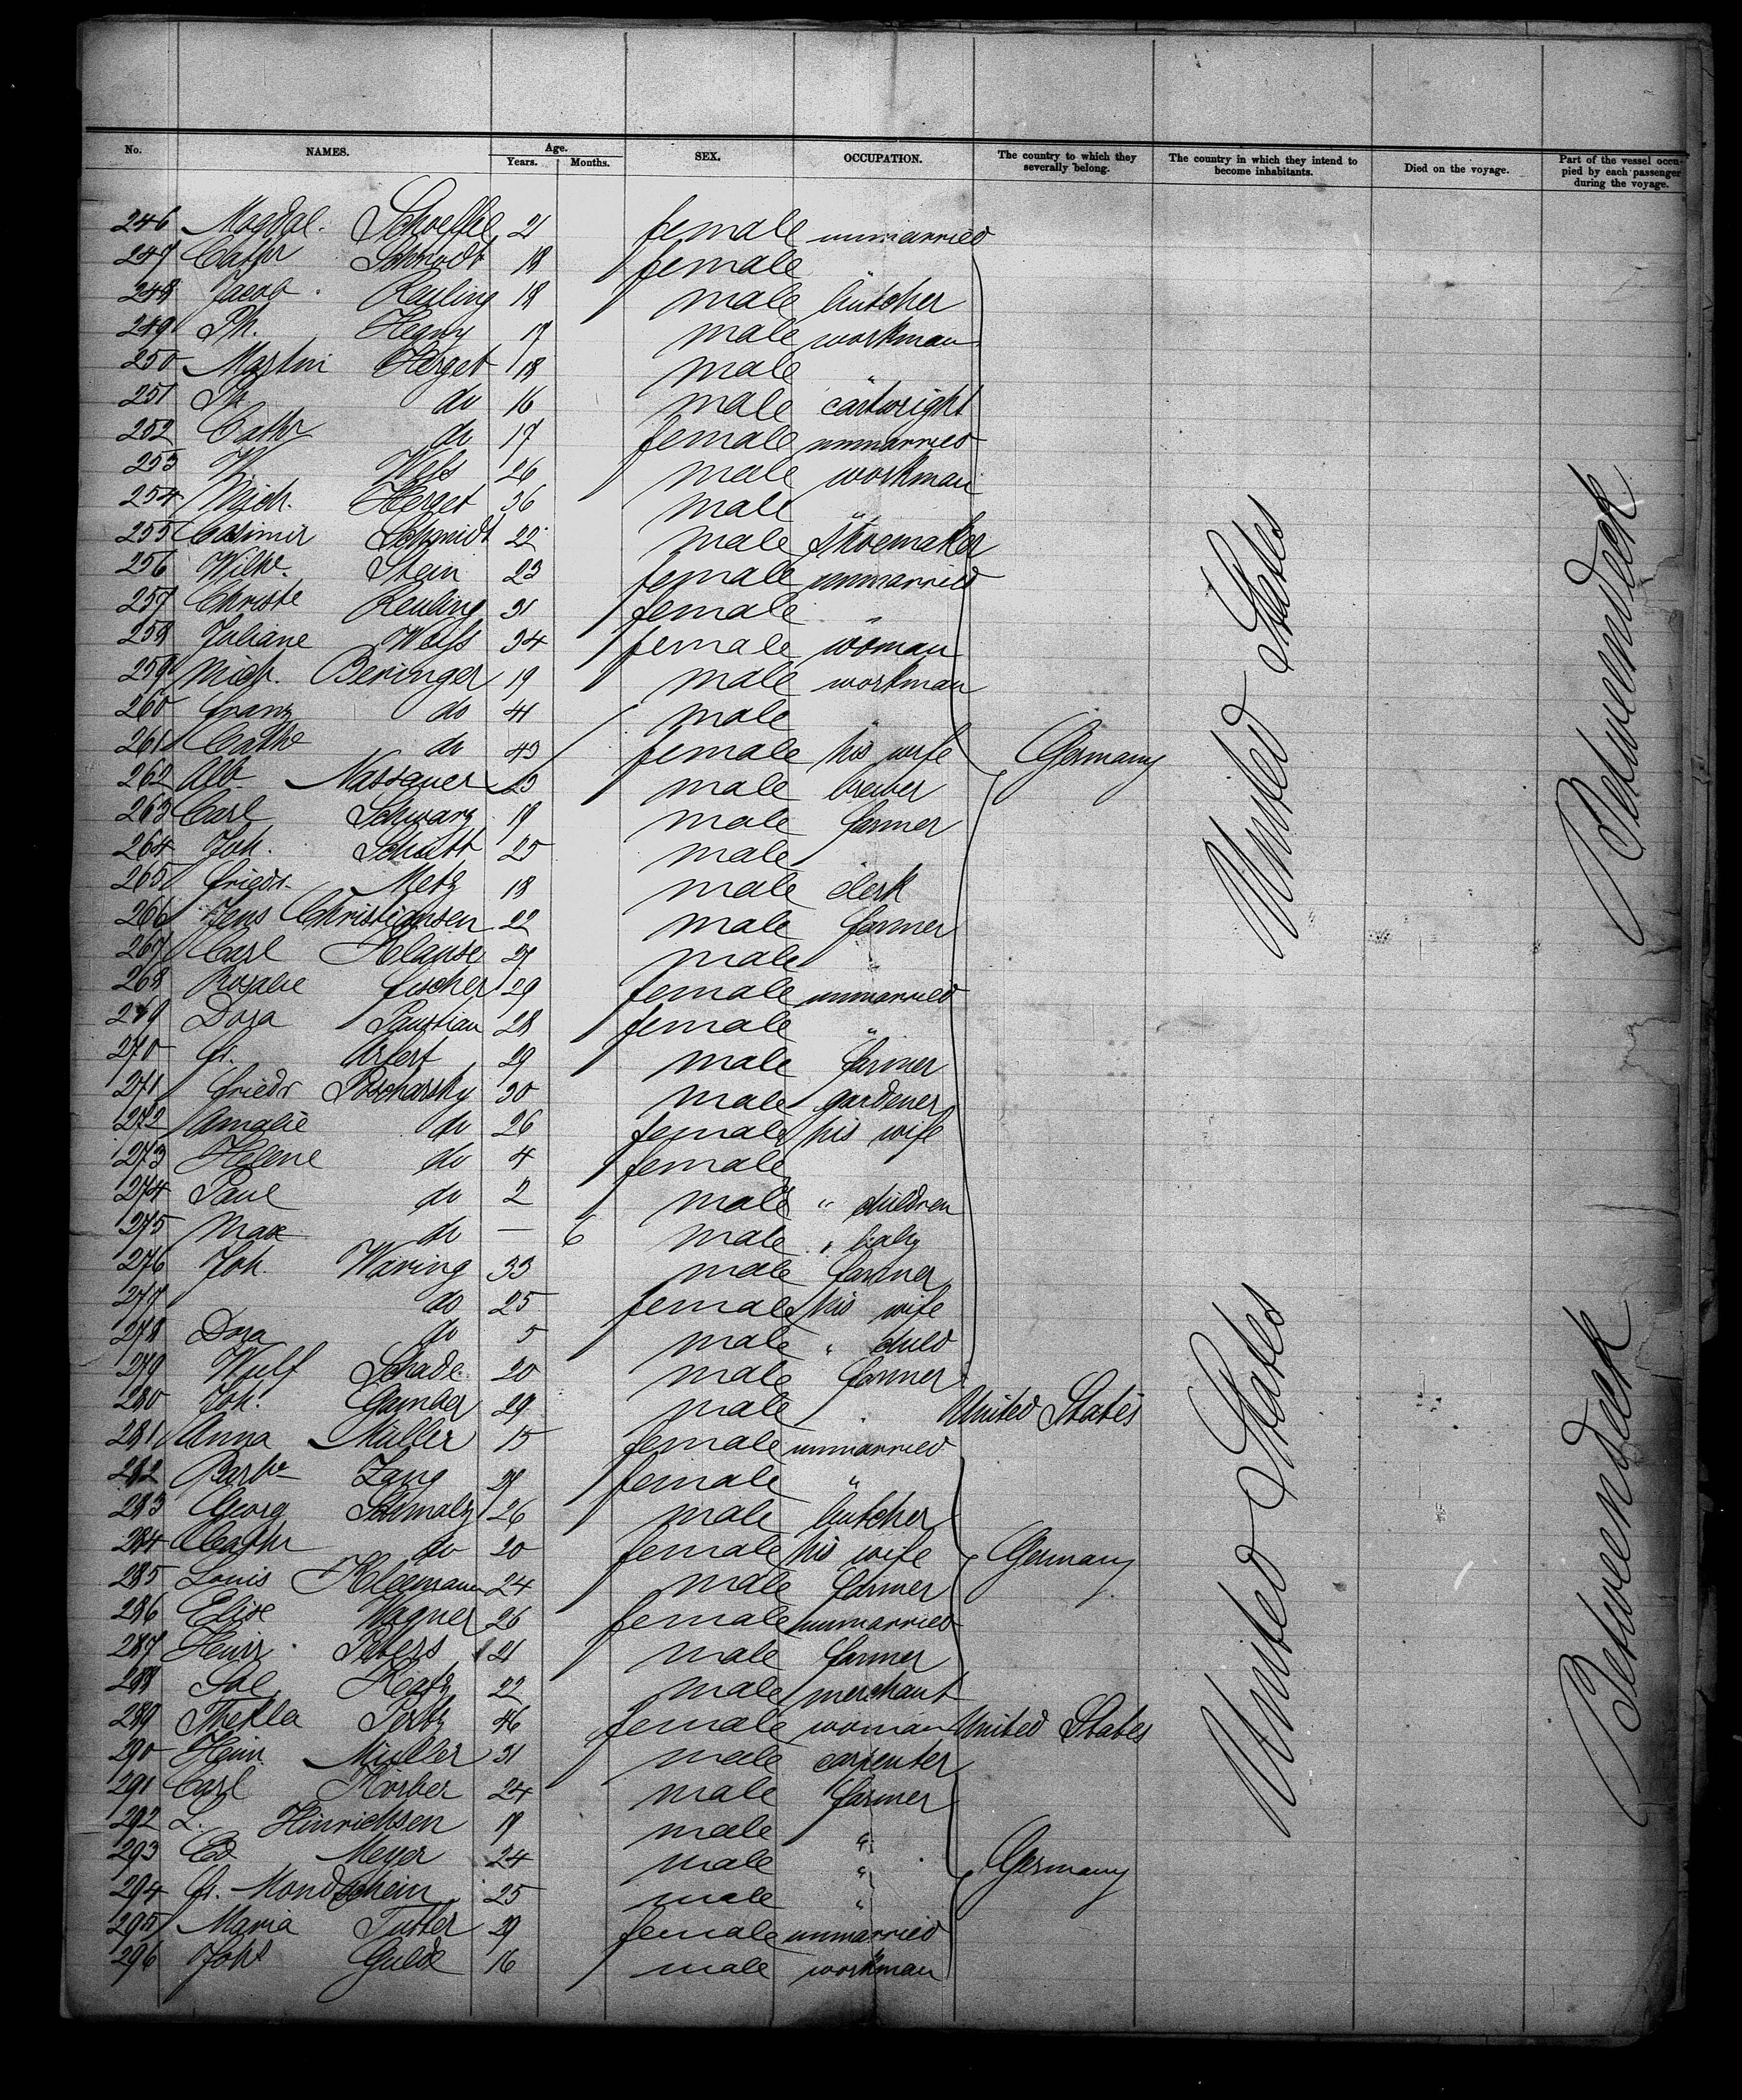 No. NAMES. Age. Years. Months. SEX. OCCUPATION. The country to which they severally belong. The country in which they intend to become inhabitants. Died on the voyage. Part of the vessel occupied by each passenger during the voyage.
246 Magdal. 21 female unmarried
247 Cathr Schmidt 18 female "
248 Jacob Reuling 18 male butcher
249 Ph. Henny 17 male workman
250 Martin Herget 18 male "
251 Ph. do 16 male cartwright
252 Cathr do 17 female unmarried
253 W. Weiss 26 male workman
254 Mich. Herget 36 male "
255 Casimir Schmidt 22 male shoemaker
256 Wilhe. Stein 23 female unmarried
257 Christe Reuling 31 female "
258 Juliane Weiss 34 female woman
259 Mich. Beringer 19 male workman
260 Franz do 41 male "
261 Cathe do 43 female his wife Germany
262 Alb. Nassauer 23 male
263 Carl Schwarz 19 male farmer
264 Joh. Schütt 25 male "
265 Friedr. Metz 18 male clerk
266 Jens Christiansen 22 male farmer
267 Carl Klause 27 male "
268 Rosalie Fischer 29 female unmarried
269 Dora Paustian 28 female "
270 Fr. 29 male farmer
271 Friedr Poscharsky 30 male gardener
272 Amalie do 26 female his wife
273 Helene do 4 female
274 Paul do 2 male " children
275 Max do — 6 male " baby
276 Joh. Waring 33 male farmer
277 do 25 female his wife
278 Dora do 5 male " child
279 Wulf Schade 20 male farmer
280 Joh. Gamber 29 male " United States
281 Anna Müller 15 female unmarried
282 Barbe Zang 28 female "
283 Georg Schmalz 26 male butcher
284 Cathr do 20 female his wife Germany
285 Louis Kleemann 24 male farmer
286 Elise Wagner 26 female unmarried
287 Heinr. Peters 21 male farmer
288 Sal Katz 22 male merchant
289 Thekla 46 female woman United States
290 Hein Müller 31 male carpenter
291 Carl Körber 24 male farmer
292 L. Hinrichsen 19 male "
293 Ed Meyer 24 male " Germany
294 Fr. Mondschein 25 male "
295 Maria Tutter 29 female unmarried
296 Johs Gulde 16 male workman
United States
United States
Betweendeck
Betweendeck